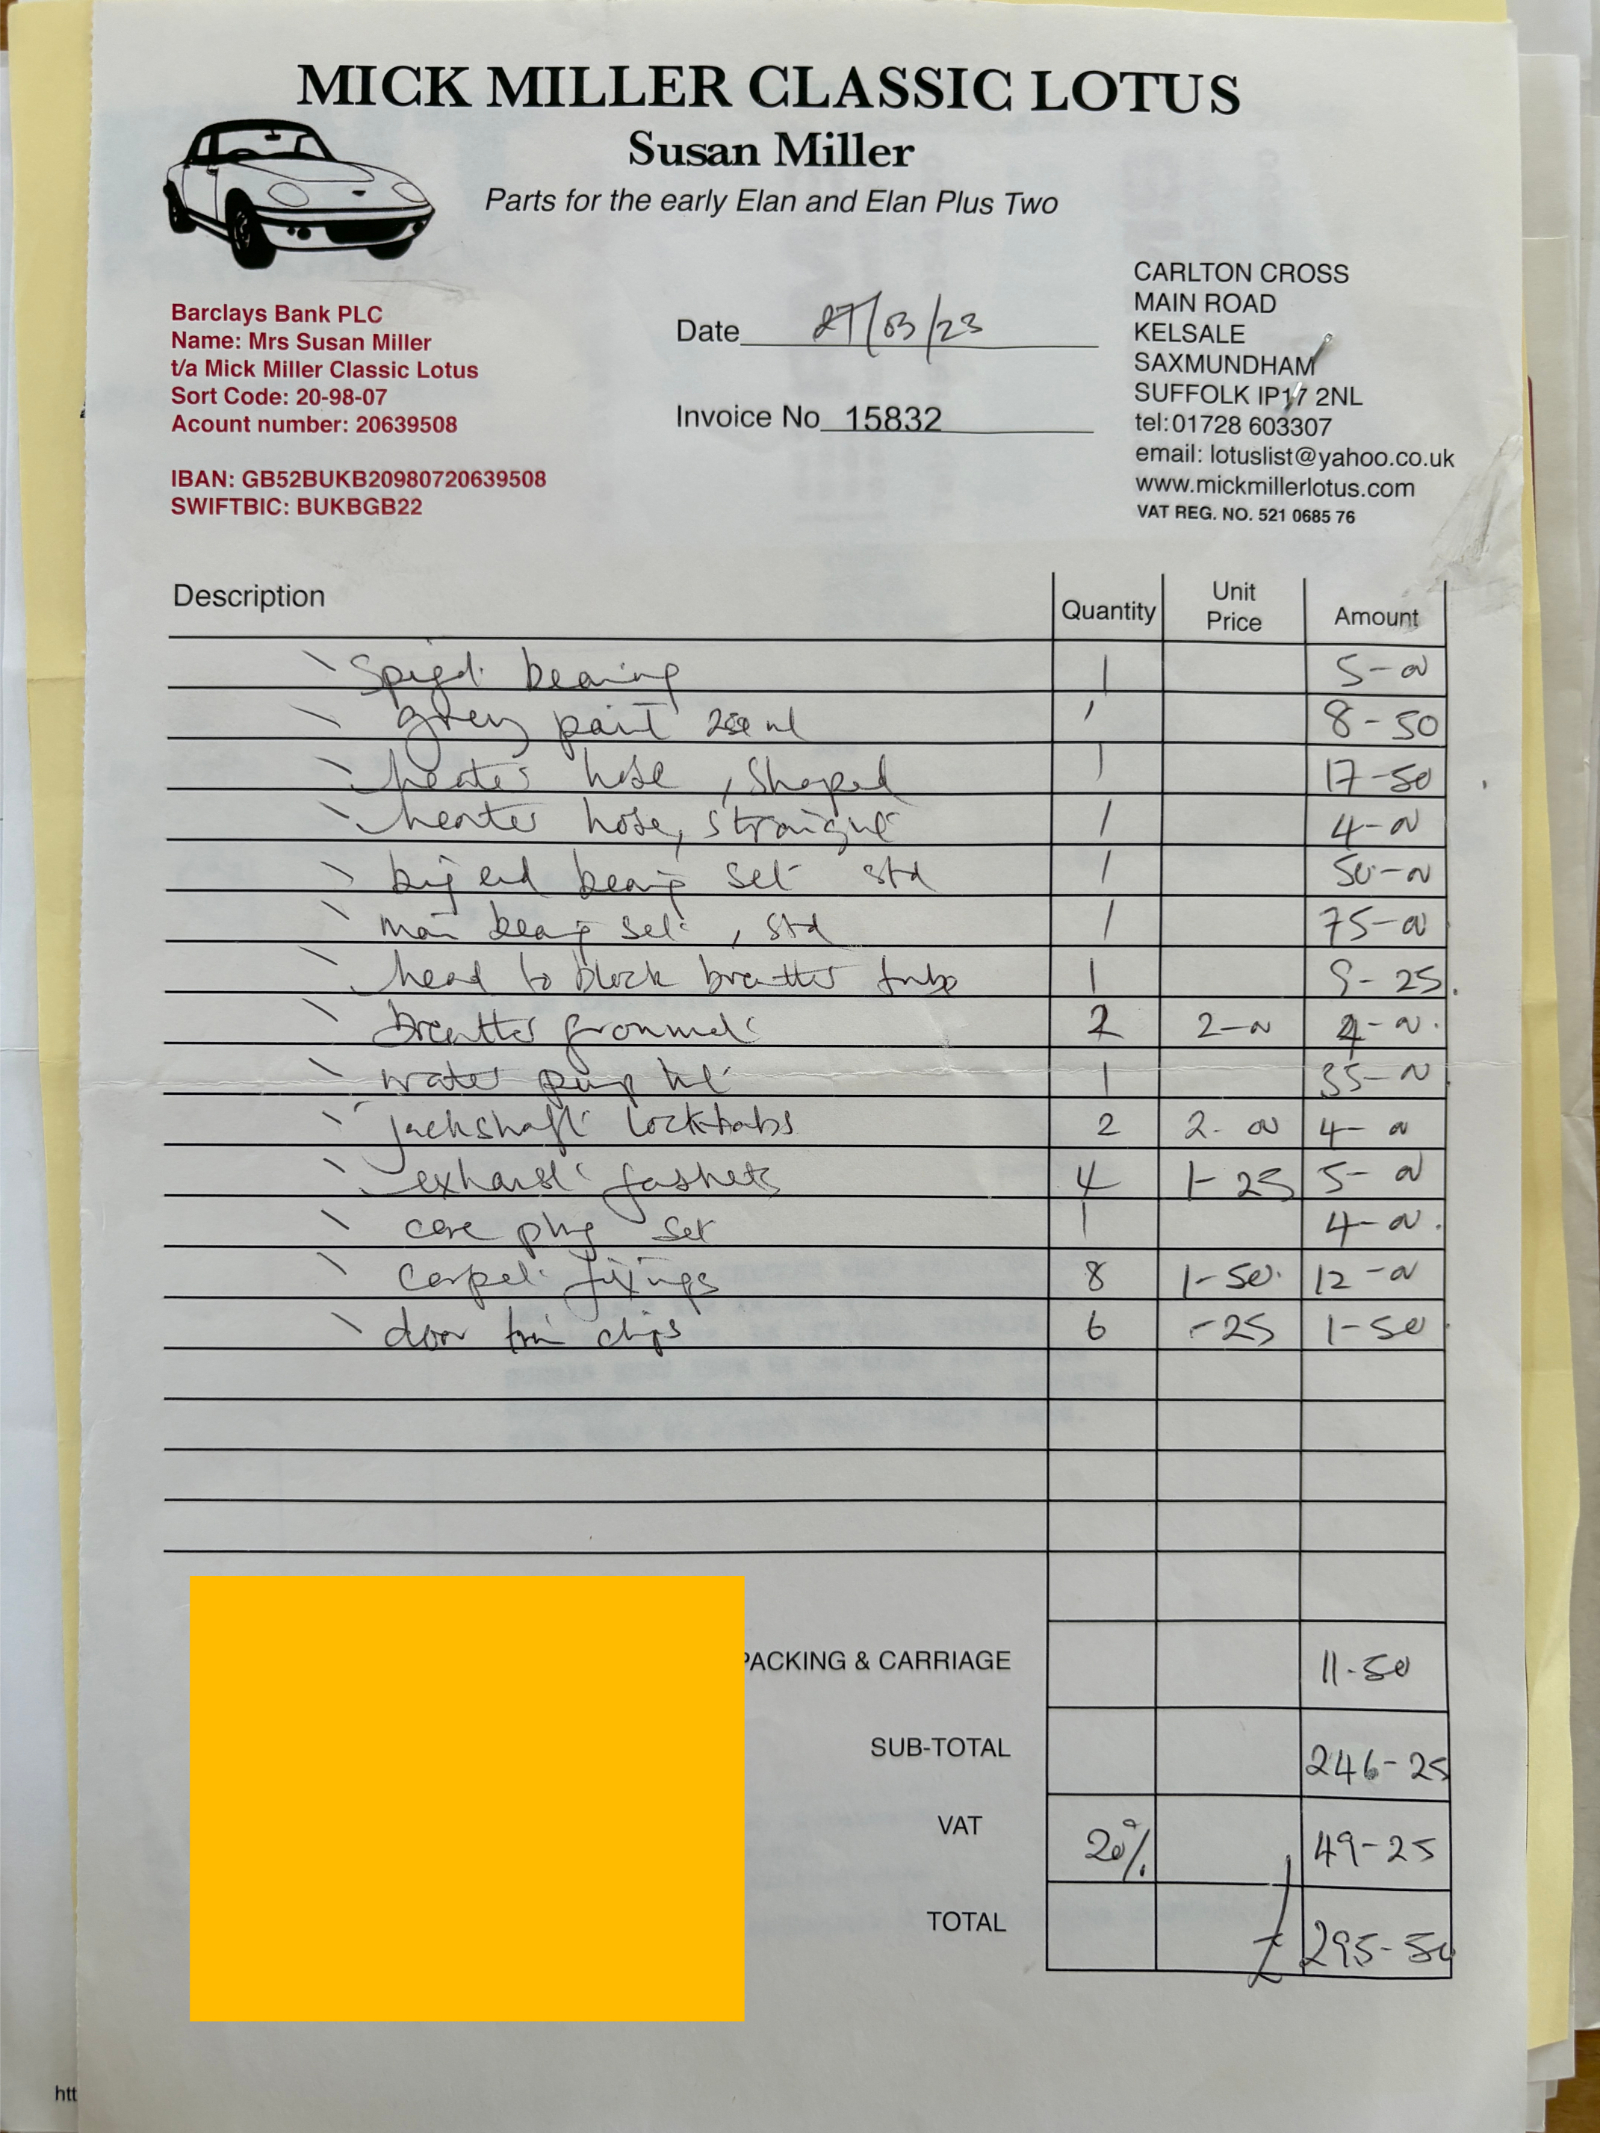 MICK MILLER CLASSIC LOTUS
Susan Miller
Parts for the early Elan and Elan Plus Two
Barclays Bank PLC
Name: Mrs Susan Miller
t/a Mick Miller Classic Lotus
Sort Code: 20-98-07
Acount number: 20639508
IBAN: GB52BUKB20980720639508
SWIFTBIC: BUKBGB22
Date 27/03/23
Invoice No 15832
CARLTON CROSS
MAIN ROAD
KELSALE
SAXMUNDHAM
SUFFOLK IP17 2NL
tel:01728 603307
email: lotuslist@yahoo.co.uk
www.mickmillerlotus.com
VAT REG. NO. 521 0685 76
Description Quantity Unit Price Amount
Spigot bearing 1 5-00
grey paint 250 ml 1 8-50
heater hose, shaped 1 17-50
heater hose, straight 1 4-00
big end bearing set std 1 50-00
main bearing set, std 1 75-00
head to block breather tube 1 9-25
breather grommet 2 2-00 4-00
water pump kit 1 35-00
jackshaft locktabs 2 2-00 4-00
exhaust gaskets 4 1-25 5-00
core plug set 1 4-00
carpet fixings 8 1-50 12-00
door trim clips 6 -25 1-50
PACKING & CARRIAGE 11-50
SUB-TOTAL 246-25
VAT 20% 49-25
TOTAL £295-50
htt